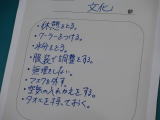 文化
・休憩をとる。
・クーラーをつける。
・水分をとる。
・服装で調整をする。
・無理をしない。
・マスクを外す。
・空気の入れかえをする。
・タオルを持っておく。